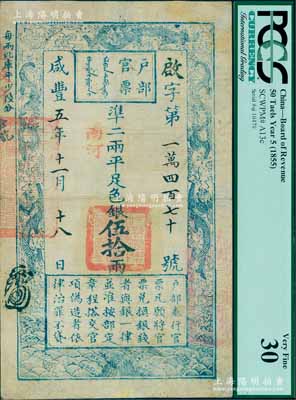 上海陽明拍賣
每兩比庫平少陸分
戶部
官票
啟字第一萬四百七十號
準二兩平足色銀伍拾兩
兩河
咸豐五年十一月十八日
戶部奏行官
票凡願將官
票兌換銀錢
者與銀一律
並準按部定
章程搭交官
項偽造者依
律治罪不貸
PCGS
CURRENCY
International Grading
China—Board of Revenue
50 Taels Year 5 (1855)
SCWPM# A13c
Very Fine
30
上海陽明拍賣